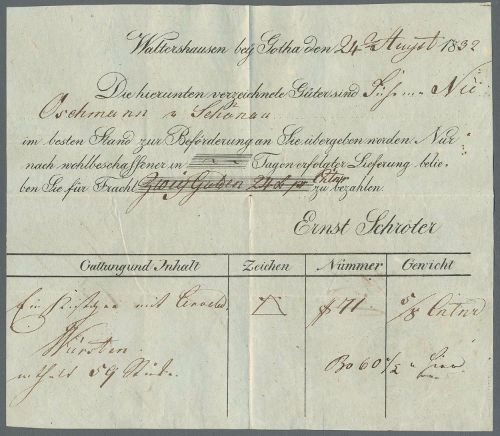 Waltershausen bey Gotha den 24 August 1832
Die hierunten verzeichnete Güter sind
Oschmann v Schönau
im besten Stand zur Beförderung an Sie übergeben worden Nur
nach wohlbeschaffener in Tagen erfolgter Lieferung belie
ben Sie für Fracht Zwey Gulden 24 x pr Cntnr zu bezahlen.
Ernst Schröter
Guttung und Inhalt Zeichen Nümmer Gewicht
Ein mit 71 5/8 Cntnr
Würsten.
enthält 59 Stücke. 60 1/2